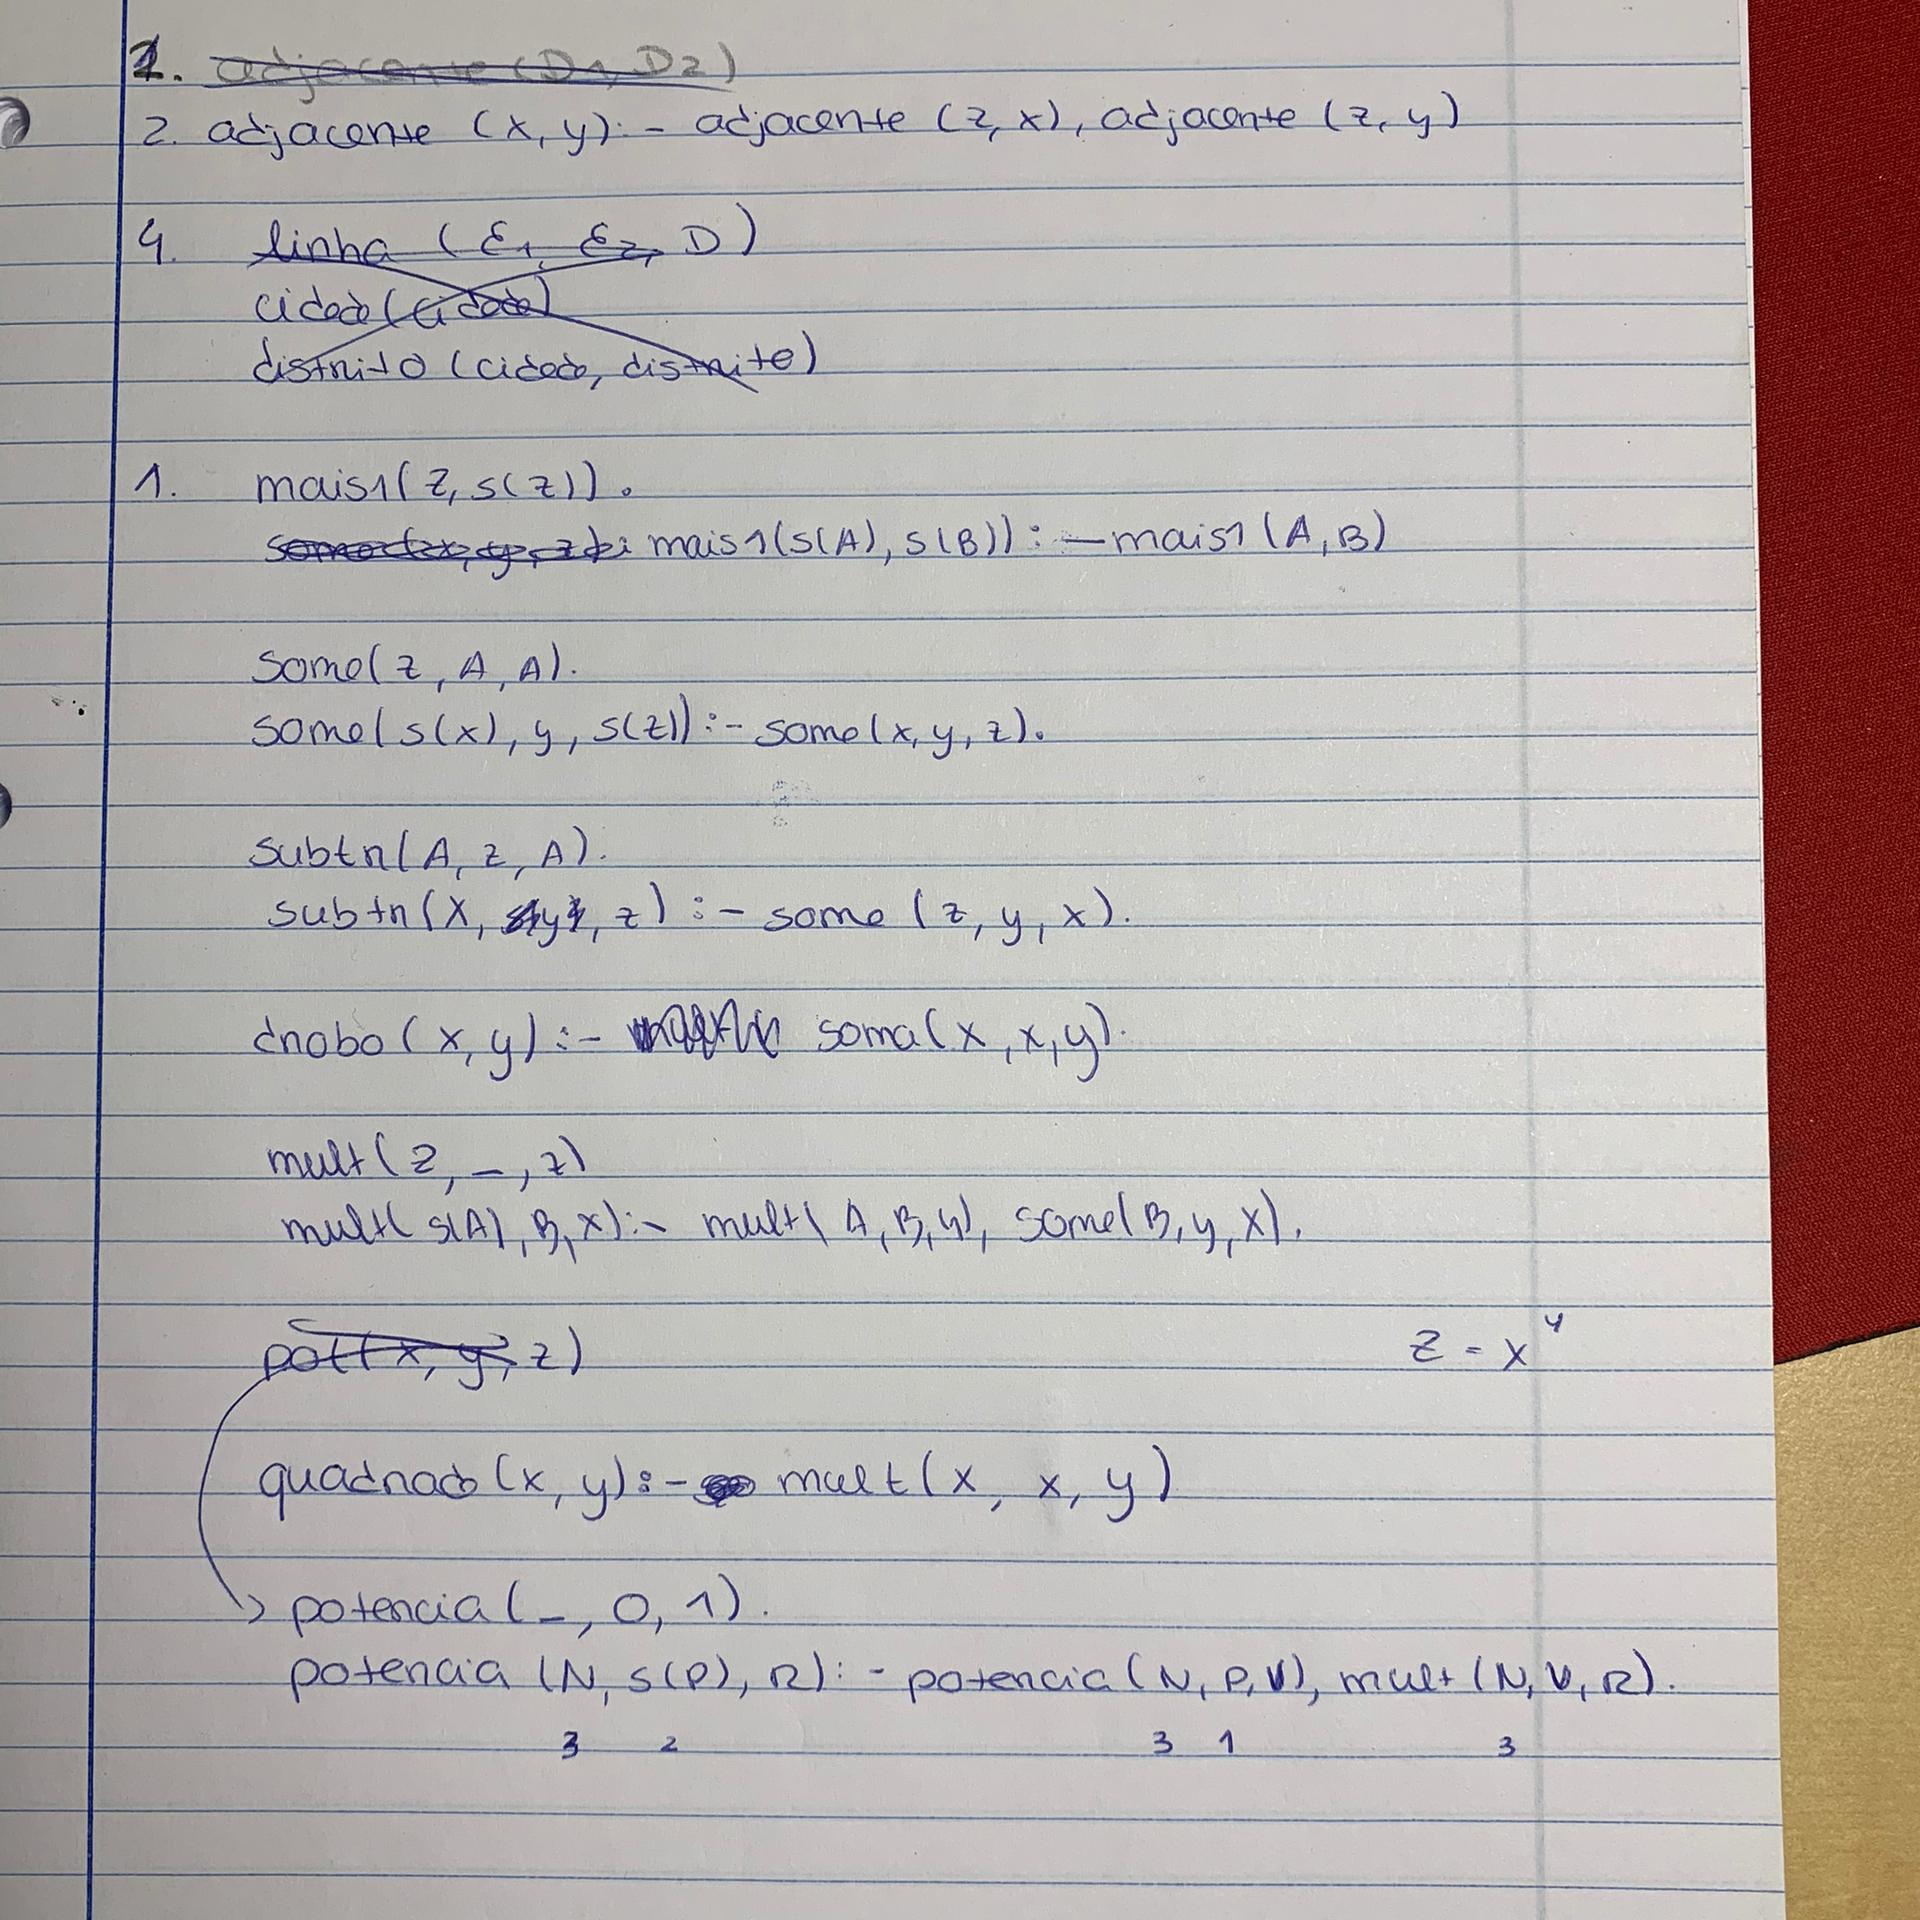 1. adjacente (D1, D2)
2. adjacente (x, y) :- adjacente (z, x), adjacente (z, y)
4. linha (E1, E2, D)
cidade (cidade)
distrito (cidade, distrito)
1. mais1(z, s(z)).
soma(x, y, z): mais1(s(A), s(B)) :- mais1(A, B)
soma(z, A, A).
soma(s(x), y, s(z)) :- soma(x, y, z).
subtr(A, z, A).
subtr(x, y, z) :- soma (z, y, x).
drobo (x, y) :- soma(x, x, y).
mult(z, _, z)
mult(s(A), B, x) :- mult(A, B, y), soma(B, y, x).
pot(x, y, z) z = x^y
quadrado (x, y) :- mult (x, x, y)
potencia (_, 0, 1).
potencia (N, s(P), R) :- potencia (N, P, V), mult (N, V, R).
3 2 3 1 3